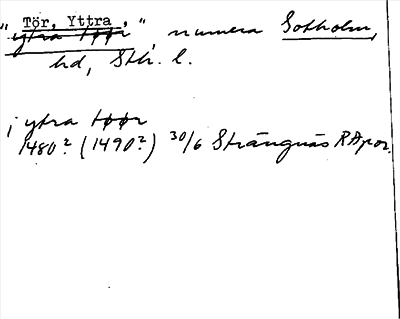 Tör, Yttra,
"ytra tøør", numera Sotholm,
hd, Sth. l.
i ytra tøør
1480? (1490?) 30/6 Strängnäs RApor.